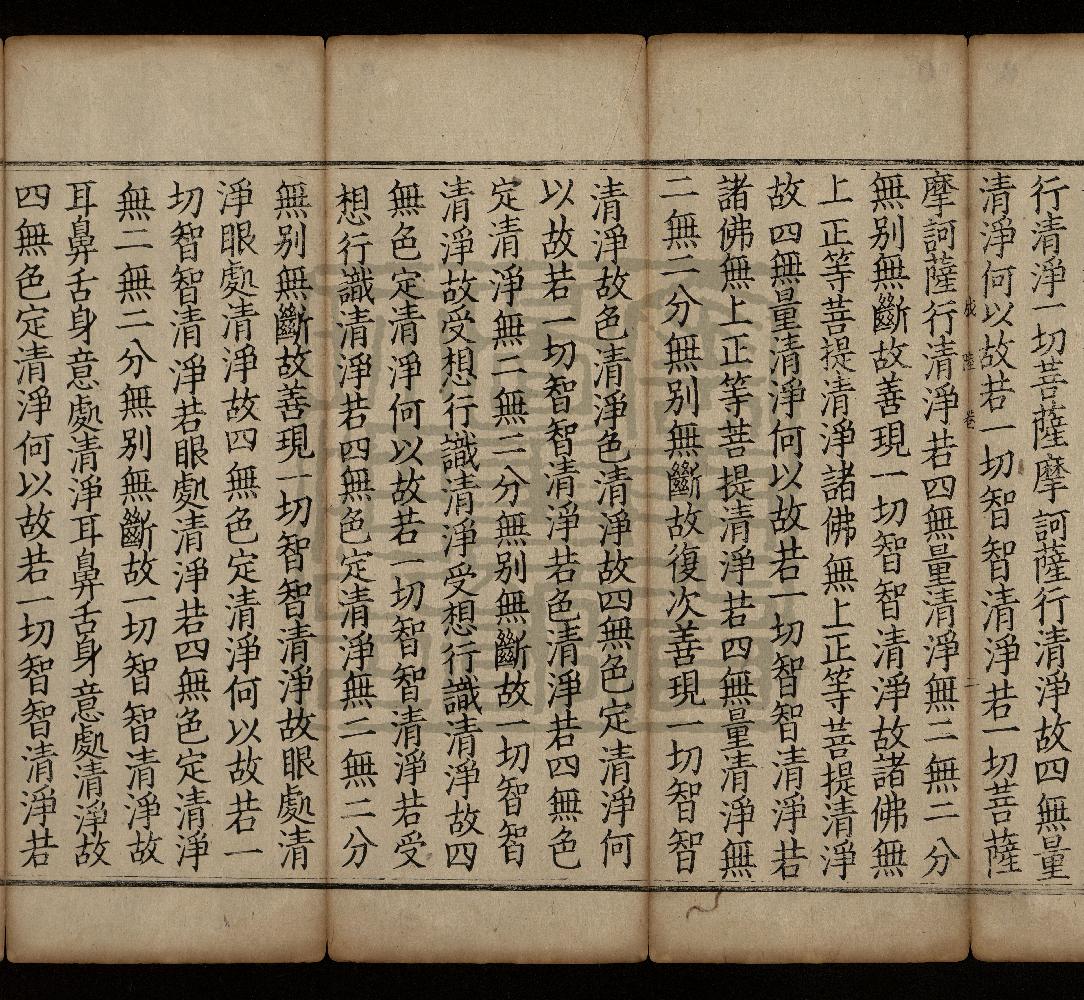 行清淨一切菩薩摩訶薩行清淨故四無量
清淨何以故若一切智智清淨若一切菩薩
摩訶薩行清淨若四無量清淨無二無二分
無別無斷故善現一切智智清淨故諸佛無
上正等菩提清淨諸佛無上正等菩提清淨
故四無量清淨何以故若一切智智清淨若
諸佛無上正等菩提清淨若四無量清淨無
二無二分無別無斷故復次善現一切智智
清淨故色清淨色清淨故四無色定清淨何
以故若一切智智清淨若色清淨若四無色
定清淨無二無二分無別無斷故一切智智
清淨故受想行識清淨受想行識清淨故四
無色定清淨何以故若一切智智清淨若受
想行識清淨若四無色定清淨無二無二分
無別無斷故善現一切智智清淨故眼處清
淨眼處清淨故四無色定清淨何以故若一
切智智清淨若眼處清淨若四無色定清淨
無二無二分無別無斷故一切智智清淨故
耳鼻舌身意處清淨耳鼻舌身意處清淨故
四無色定清淨何以故若一切智智清淨若